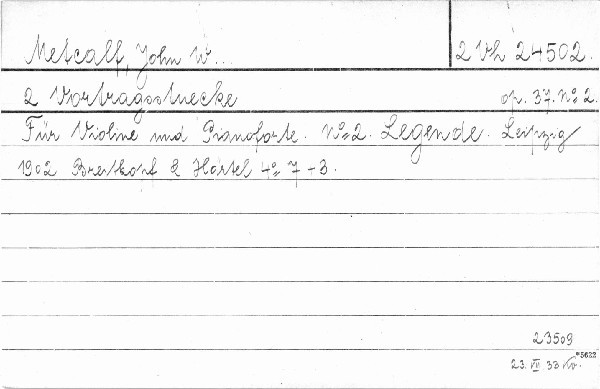 Metcalf, John W... 2 Vh 24502.
2 Vortragsstuecke op. 37. No 2.
Für Violine und Pianoforte. No 2. Legende. Leipzig
1902 Breitkopf & Härtel 4o 7+3.
23509
*5622
23. VII 33